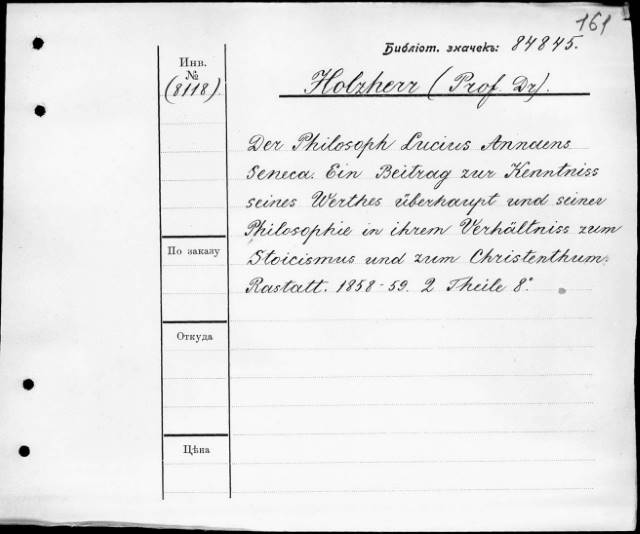 161
Библіот. значекъ: 84845.
Инв.
№
(8118).
Holzherr (Prof. Dr).
Der Philosoph Lucius Annaens
Seneca. Ein Beitrag zur Kenntniss
seines Werthes überhaupt und seiner
Philosophie in ihrem Verhältniss zum
Stoicismus und zum Christenthum.
Rastatt. 1858-59. 2 Theile 8°.
По заказу
Откуда
Цѣна